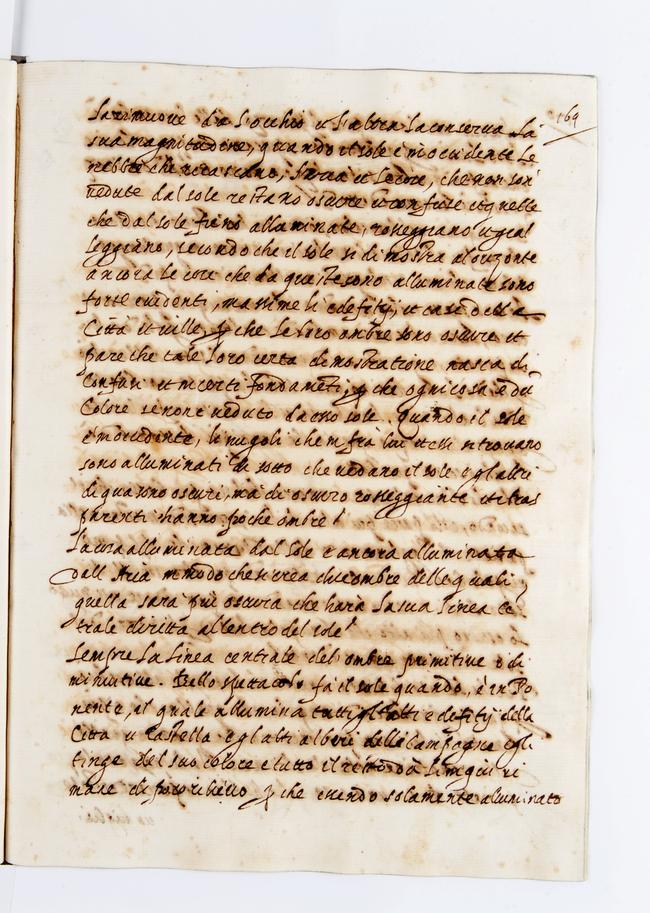 169
rimuove da l'occhio et s'altera la conserva la
sua magnitudine, quando il sole è in occidente Le
nebbie che, l'aria et le cose, che non son'
vedute dal sole restano oscure et confuse et quelle
che dal sole fieno alluminate, rosseggiano et gial
leggiano, secondo che il sole si dimostra al orizonte
ancora le cose che da queste sono alluminate sono
forte evidenti, massime li edefitij, et case della
Città et ville, ꝑ che le loro ombre sono oscure et
pare che tale loro certa dimostratione nasca di
Confusi et incerti fondameti, ꝑ che ogni cosa è dũ
Colore se non è veduto da esso sole. Quando il sole
è in occidente, li nugoli che in fra lui et si trovano
sono alluminati di sotto che vedano il sole e gl'altri
di qua sono oscuri, ma di oscuro rosseggiante et tras
parenti hanno poche ombre
La cosa alluminata dal sole è ancora alluminata
dall Aria in modo che si crea due ombre delle quali
quella sarà più oscura che harà la sua linea cẽ
trale diritta al centro del sole
Sempre La Linea centrale del ombre primitive è di
minutive. spettacolo fà il sole quando, è in Po
nente, il quale allumina tutti gl'alti edefitij della
Città et Castella e gl'alti alberi delle Campagne e gli
tinge del suo colore e tutto il resto da lì in qui ri
mane di poco rilievo ꝑ che essendo solamente aluminato